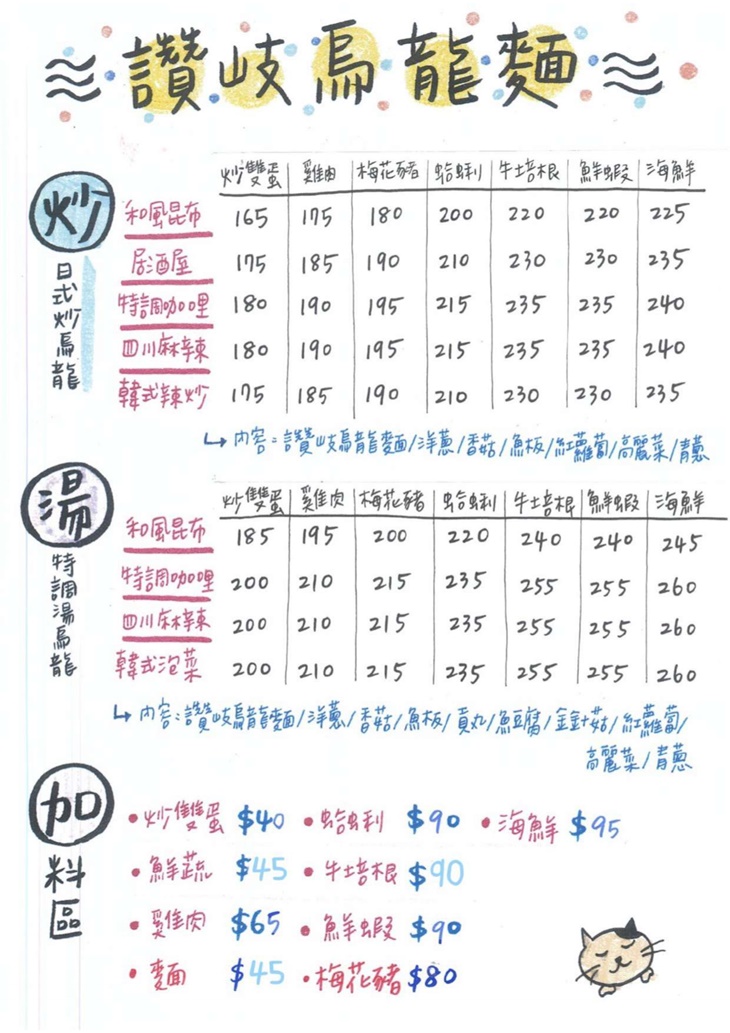 讚岐烏龍麵
炒
日式炒烏龍
炒雙蛋 雞肉 梅花豬 蛤蜊 牛培根 鮮蝦 海鮮
和風昆布 165 175 180 200 220 220 225
居酒屋 175 185 190 210 230 230 235
特調咖哩 180 190 195 215 235 235 240
四川麻辣 180 190 195 215 235 235 240
韓式辣炒 175 185 190 210 230 230 235
內容:讚岐烏龍麵/洋蔥/香菇/魚板/紅蘿蔔/高麗菜/青蔥
湯
特調湯烏龍
炒雙蛋 雞肉 梅花豬 蛤蜊 牛培根 鮮蝦 海鮮
和風昆布 185 195 200 220 240 240 245
特調咖哩 200 210 215 235 255 255 260
四川麻辣 200 210 215 235 255 255 260
韓式泡菜 200 210 215 235 255 255 260
內容:讚岐烏龍麵/洋蔥/香菇/魚板/貢丸/魚豆腐/金針菇/紅蘿蔔/
高麗菜/青蔥
加
料區
•炒雙蛋 $40 •蛤蜊 $90 •海鮮 $95
•鮮蔬 $45 •牛培根 $90
•雞肉 $65 •鮮蝦 $90
•麵 $45 •梅花豬 $80